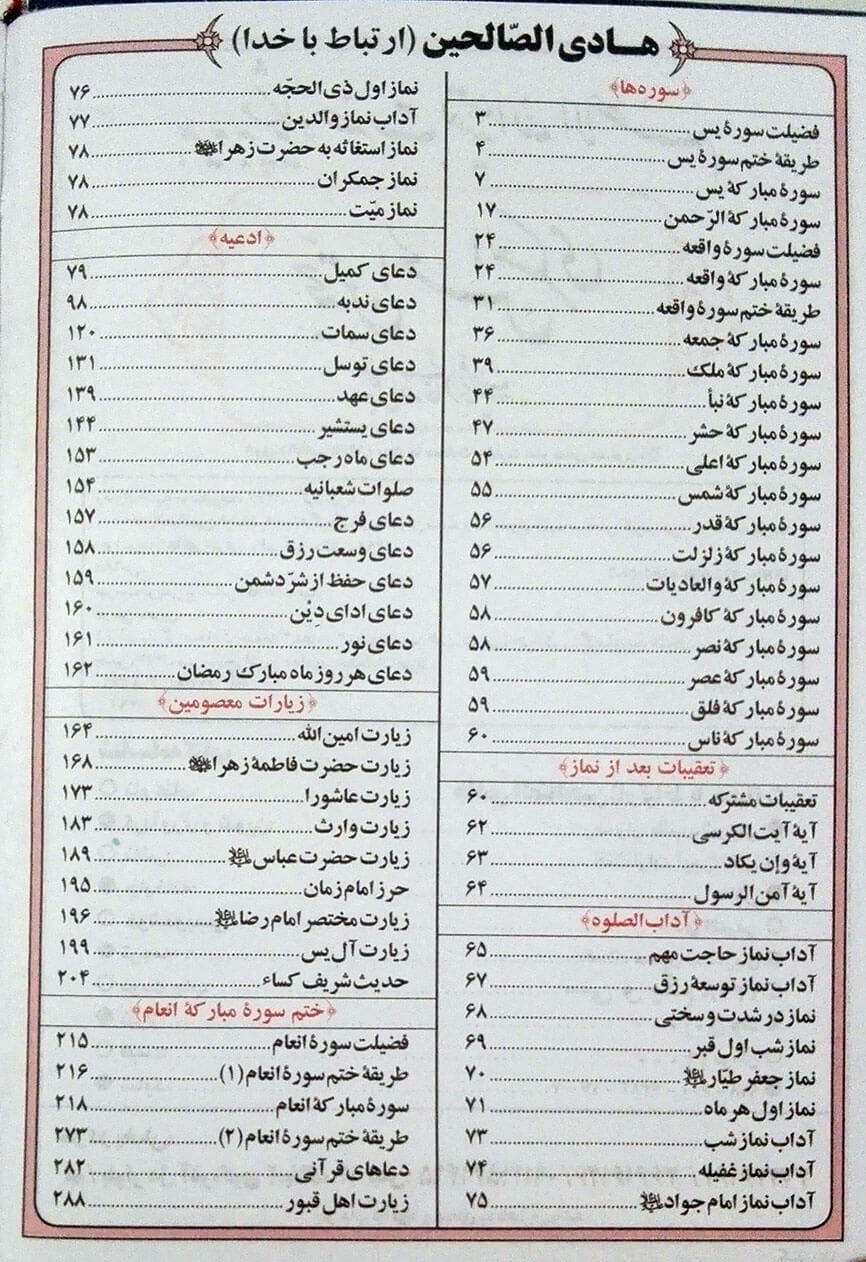 هادی الصّالحین (ارتباط با خدا)
﴿سوره‌ها﴾
فضیلت سورهٔ یس ........ ۳
طریقهٔ ختم سورهٔ یس ........ ۴
سورهٔ مبارکهٔ یس ........ ۷
سورهٔ مبارکهٔ الرّحمن ........ ۱۷
فضیلت سورهٔ واقعه ........ ۲۴
سورهٔ مبارکهٔ واقعه ........ ۲۴
طریقهٔ ختم سورهٔ واقعه ........ ۳۱
سورهٔ مبارکهٔ جمعه ........ ۳۶
سورهٔ مبارکهٔ ملک ........ ۳۹
سورهٔ مبارکهٔ نبأ ........ ۴۴
سورهٔ مبارکهٔ حشر ........ ۴۷
سورهٔ مبارکهٔ اعلی ........ ۵۴
سورهٔ مبارکهٔ شمس ........ ۵۵
سورهٔ مبارکهٔ قدر ........ ۵۶
سورهٔ مبارکهٔ زلزلت ........ ۵۶
سورهٔ مبارکهٔ والعادیات ........ ۵۷
سورهٔ مبارکهٔ کافرون ........ ۵۸
سورهٔ مبارکهٔ نصر ........ ۵۸
سورهٔ مبارکهٔ عصر ........ ۵۹
سورهٔ مبارکهٔ فلق ........ ۵۹
سورهٔ مبارکهٔ ناس ........ ۶۰
﴿تعقیبات بعد از نماز﴾
تعقیبات مشترکه ........ ۶۰
آیهٔ آیت الکرسی ........ ۶۲
آیهٔ وإن یکاد ........ ۶۳
آیهٔ آمن الرسول ........ ۶۴
﴿آداب الصلوه﴾
آداب نماز حاجت مهم ........ ۶۵
آداب نماز توسعهٔ رزق ........ ۶۷
نماز در شدت و سختی ........ ۶۸
نماز شب اول قبر ........ ۶۹
نماز جعفر طیّار علیه‌السلام ........ ۷۰
نماز اول هر ماه ........ ۷۱
آداب نماز شب ........ ۷۳
آداب نماز غفیله ........ ۷۴
آداب نماز امام جواد علیه‌السلام ........ ۷۵
نماز اول ذی الحجّه ........ ۷۶
آداب نماز والدین ........ ۷۷
نماز استغاثه به حضرت زهرا ........ ۷۸
نماز جمکران ........ ۷۸
نماز میّت ........ ۷۸
﴿ادعیه﴾
دعای کمیل ........ ۷۹
دعای ندبه ........ ۹۸
دعای سمات ........ ۱۲۰
دعای توسل ........ ۱۳۱
دعای عهد ........ ۱۳۹
دعای یستشیر ........ ۱۴۴
دعای ماه رجب ........ ۱۵۳
صلوات شعبانیه ........ ۱۵۴
دعای فرج ........ ۱۵۷
دعای وسعت رزق ........ ۱۵۸
دعای حفظ از شرّ دشمن ........ ۱۵۹
دعای ادای دِیْن ........ ۱۶۰
دعای نور ........ ۱۶۱
دعای هر روز ماه مبارک رمضان ........ ۱۶۲
﴿زیارات معصومین﴾
زیارت امین الله ........ ۱۶۴
زیارت حضرت فاطمهٔ زهرا ........ ۱۶۸
زیارت عاشورا ........ ۱۷۳
زیارت وارث ........ ۱۸۳
زیارت حضرت عباس علیه‌السلام ........ ۱۸۹
حرز امام زمان ........ ۱۹۵
زیارت مختصر امام رضا علیه‌السلام ........ ۱۹۶
زیارت آل یس ........ ۱۹۹
حدیث شریف کساء ........ ۲۰۴
﴿ختم سورهٔ مبارکهٔ انعام﴾
فضیلت سورهٔ انعام ........ ۲۱۵
طریقهٔ ختم سورهٔ انعام (۱) ........ ۲۱۶
سورهٔ مبارکهٔ انعام ........ ۲۱۸
طریقهٔ ختم سورهٔ انعام (۲) ........ ۲۷۳
دعاهای قرآنی ........ ۲۸۲
زیارت اهل قبور ........ ۲۸۸